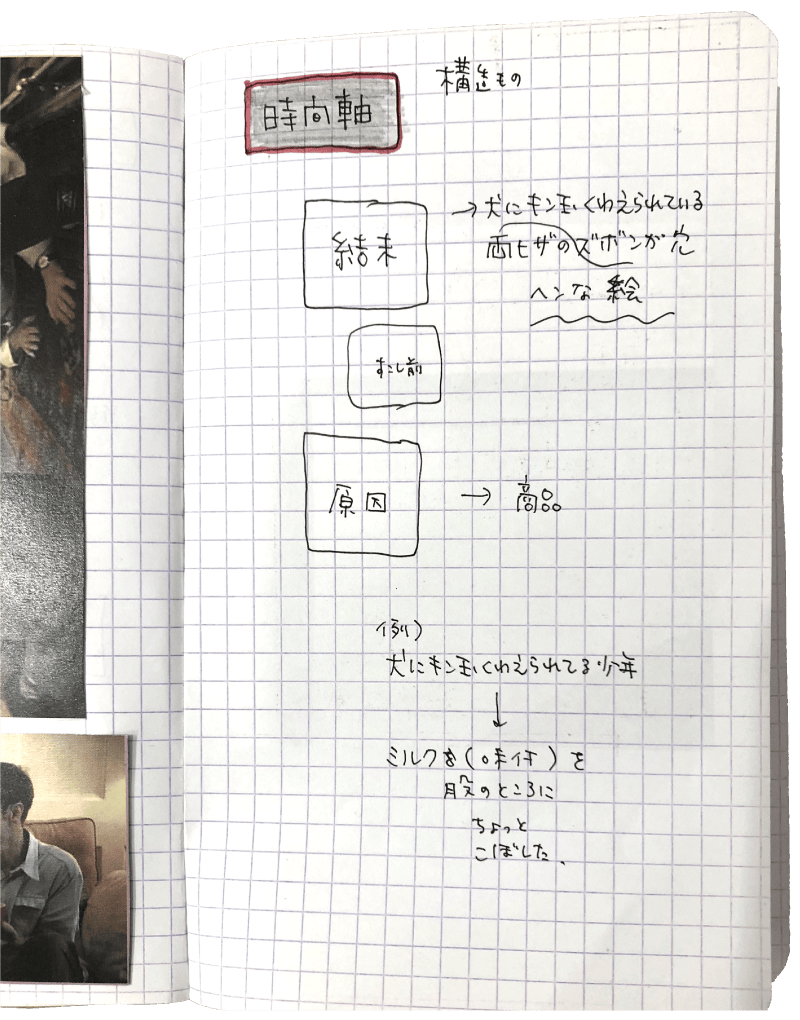 構造もの
時間軸
結末
→犬にキン玉くわえられている
両ヒザのズボンが穴
ヘンな絵
すこし前
原因
→ 商品
例)
犬にキン玉くわえられてる少年
↓
ミルクを(味付)を
股のところに
ちょっと
こぼした、